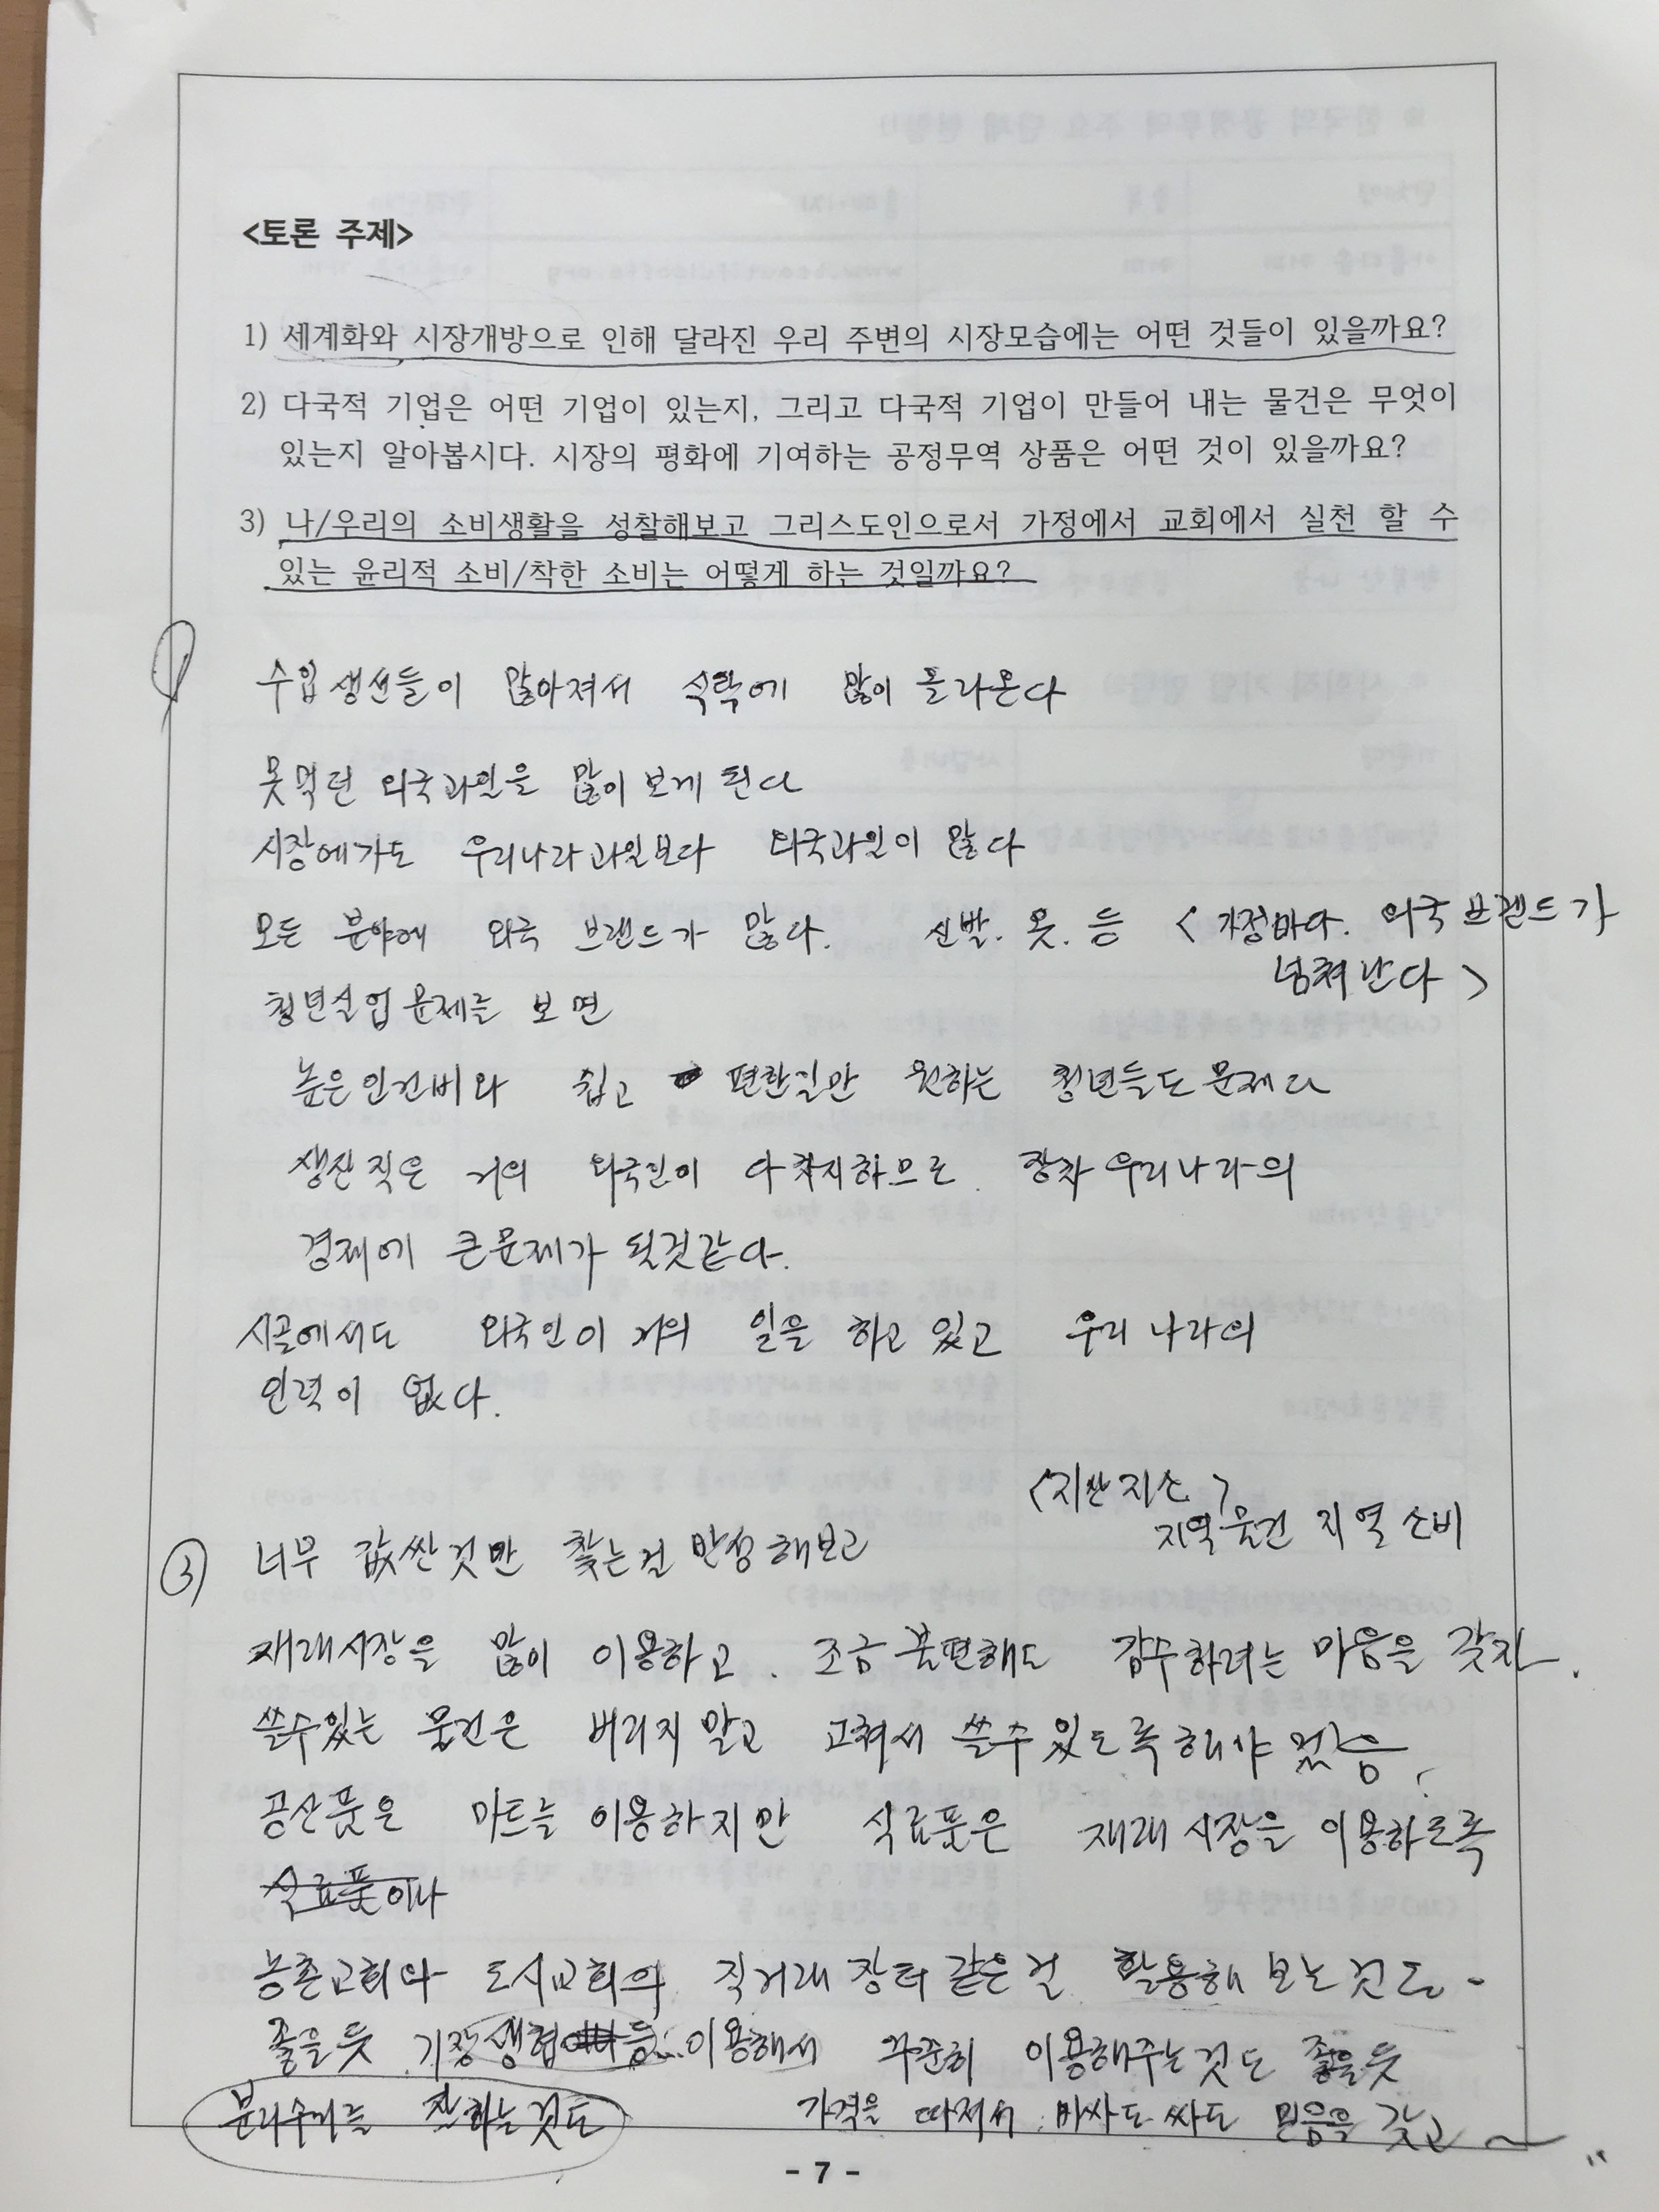 <토론 주제>
1) 세계화와 시장개방으로 인해 달라진 우리 주변의 시장모습에는 어떤 것들이 있을까요?
2) 다국적 기업은 어떤 기업이 있는지, 그리고 다국적 기업이 만들어 내는 물건은 무엇이
있는지 알아봅시다. 시장의 평화에 기여하는 공정무역 상품은 어떤 것이 있을까요?
3) 나/우리의 소비생활을 성찰해보고 그리스도인으로서 가정에서 교회에서 실천 할 수
있는 윤리적 소비/착한 소비는 어떻게 하는 것일까요?
① 수입생선들이 많아져서 식탁에 많이 올라온다
못먹던 외국과일을 많이 보게 된다
시장에가도 우리나라과일보다 외국과일이 많다
모든 분야에 외국 브랜드가 많다. 신발. 옷. 등 <가정마다. 외국브랜드가
넘쳐난다>
청년실업문제를 보면
높은인건비와 쉽고 편한길만 원하는 청년들도 문제다
생산직은 거의 외국인이 다 차지하므로. 장차 우리나라의
경제에 큰문제가 될것같다.
시골에서도 외국인이 거의 일을 하고 있고 우리나라의
인력이 없다.
<지산지소>
지역물건 지역소비
③ 너무 값싼것만 찾는걸 반성해보고
재래시장을 많이 이용하고. 조금 불편해도 감수하려는 마음을 갖자.
쓸수있는 물건은 버리지말고 고쳐서 쓸수있도록해야겠음.
공산품은 마트를 이용하지만 식료품은 재래시장을 이용하도록
식료품이나
농촌교회와 도시교회의 직거래 장터 같은걸 활용해 보는것도.
좋을듯 기장생협 등... 이용해서 꾸준히 이용해주는것도 좋을듯
분리수거를 잘하는것도 가격을 따져서 비싸도 싸도 믿음을 갖고 ~
- 7 -